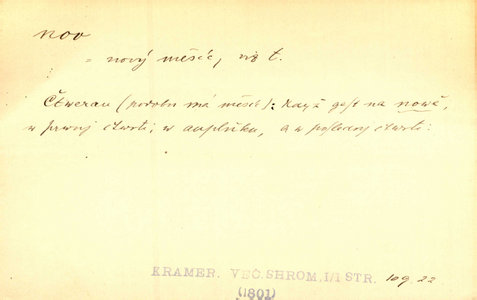 nov
= nový měsíc, viz t.
Čtweran (podobu má měsíc): když gest na nowě,
w prwnj čtwrti, w auplňku, a w poslednj čtwrti.
KRAMER. VEČ. SHROM. I/1 STR. 109, 22
(1801)